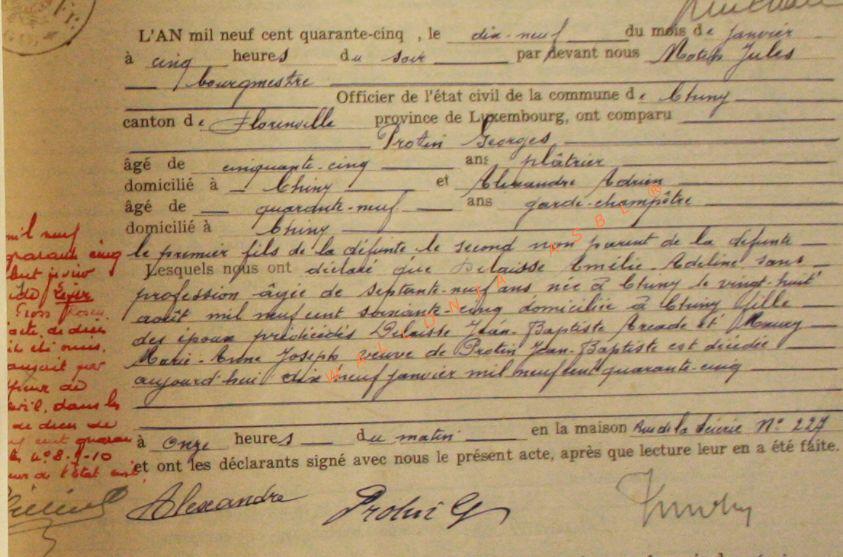 L'AN mil neuf cent quarante-cinq , le dix-neuf du mois de janvier
à cinq heures du soir par devant nous Jules
bourgmestre
Officier de l'état civil de la commune de Chiny
canton de Florenville province de Luxembourg, ont comparu
Protin Georges
âgé de cinquante-cinq ans plâtrier
domicilié à Chiny et Alexandre Adrien
âgé de quarante-neuf ans garde-champêtre
domicilié à Chiny
le premier fils de la défunte le second non parent de la défunte
Lesquels nous ont déclaré que Delaisse Emélie-Adeline sans
profession âgée de septante-neuf ans née à Chiny le vingt-huit
août mil neuf cent soixante-cinq domiciliée à Chiny fille
des époux prédécédés Delaisse Jean-Baptiste et
Marie-Anne Joseph veuve de Protin Jean-Baptiste est décédée
aujourd'hui dix neuf janvier mil neuf cent quarante-cinq
à onze heures du matin en la maison Rue de la Scierie N° 227
et ont les déclarants signé avec nous le présent acte, après que lecture leur en a été faite.
Alexandre Protin G
mil neuf
quarante cinq
acte, de
dans
cent quaran
n° 8.9.10
de l'état civil
WALLONIA ASBL